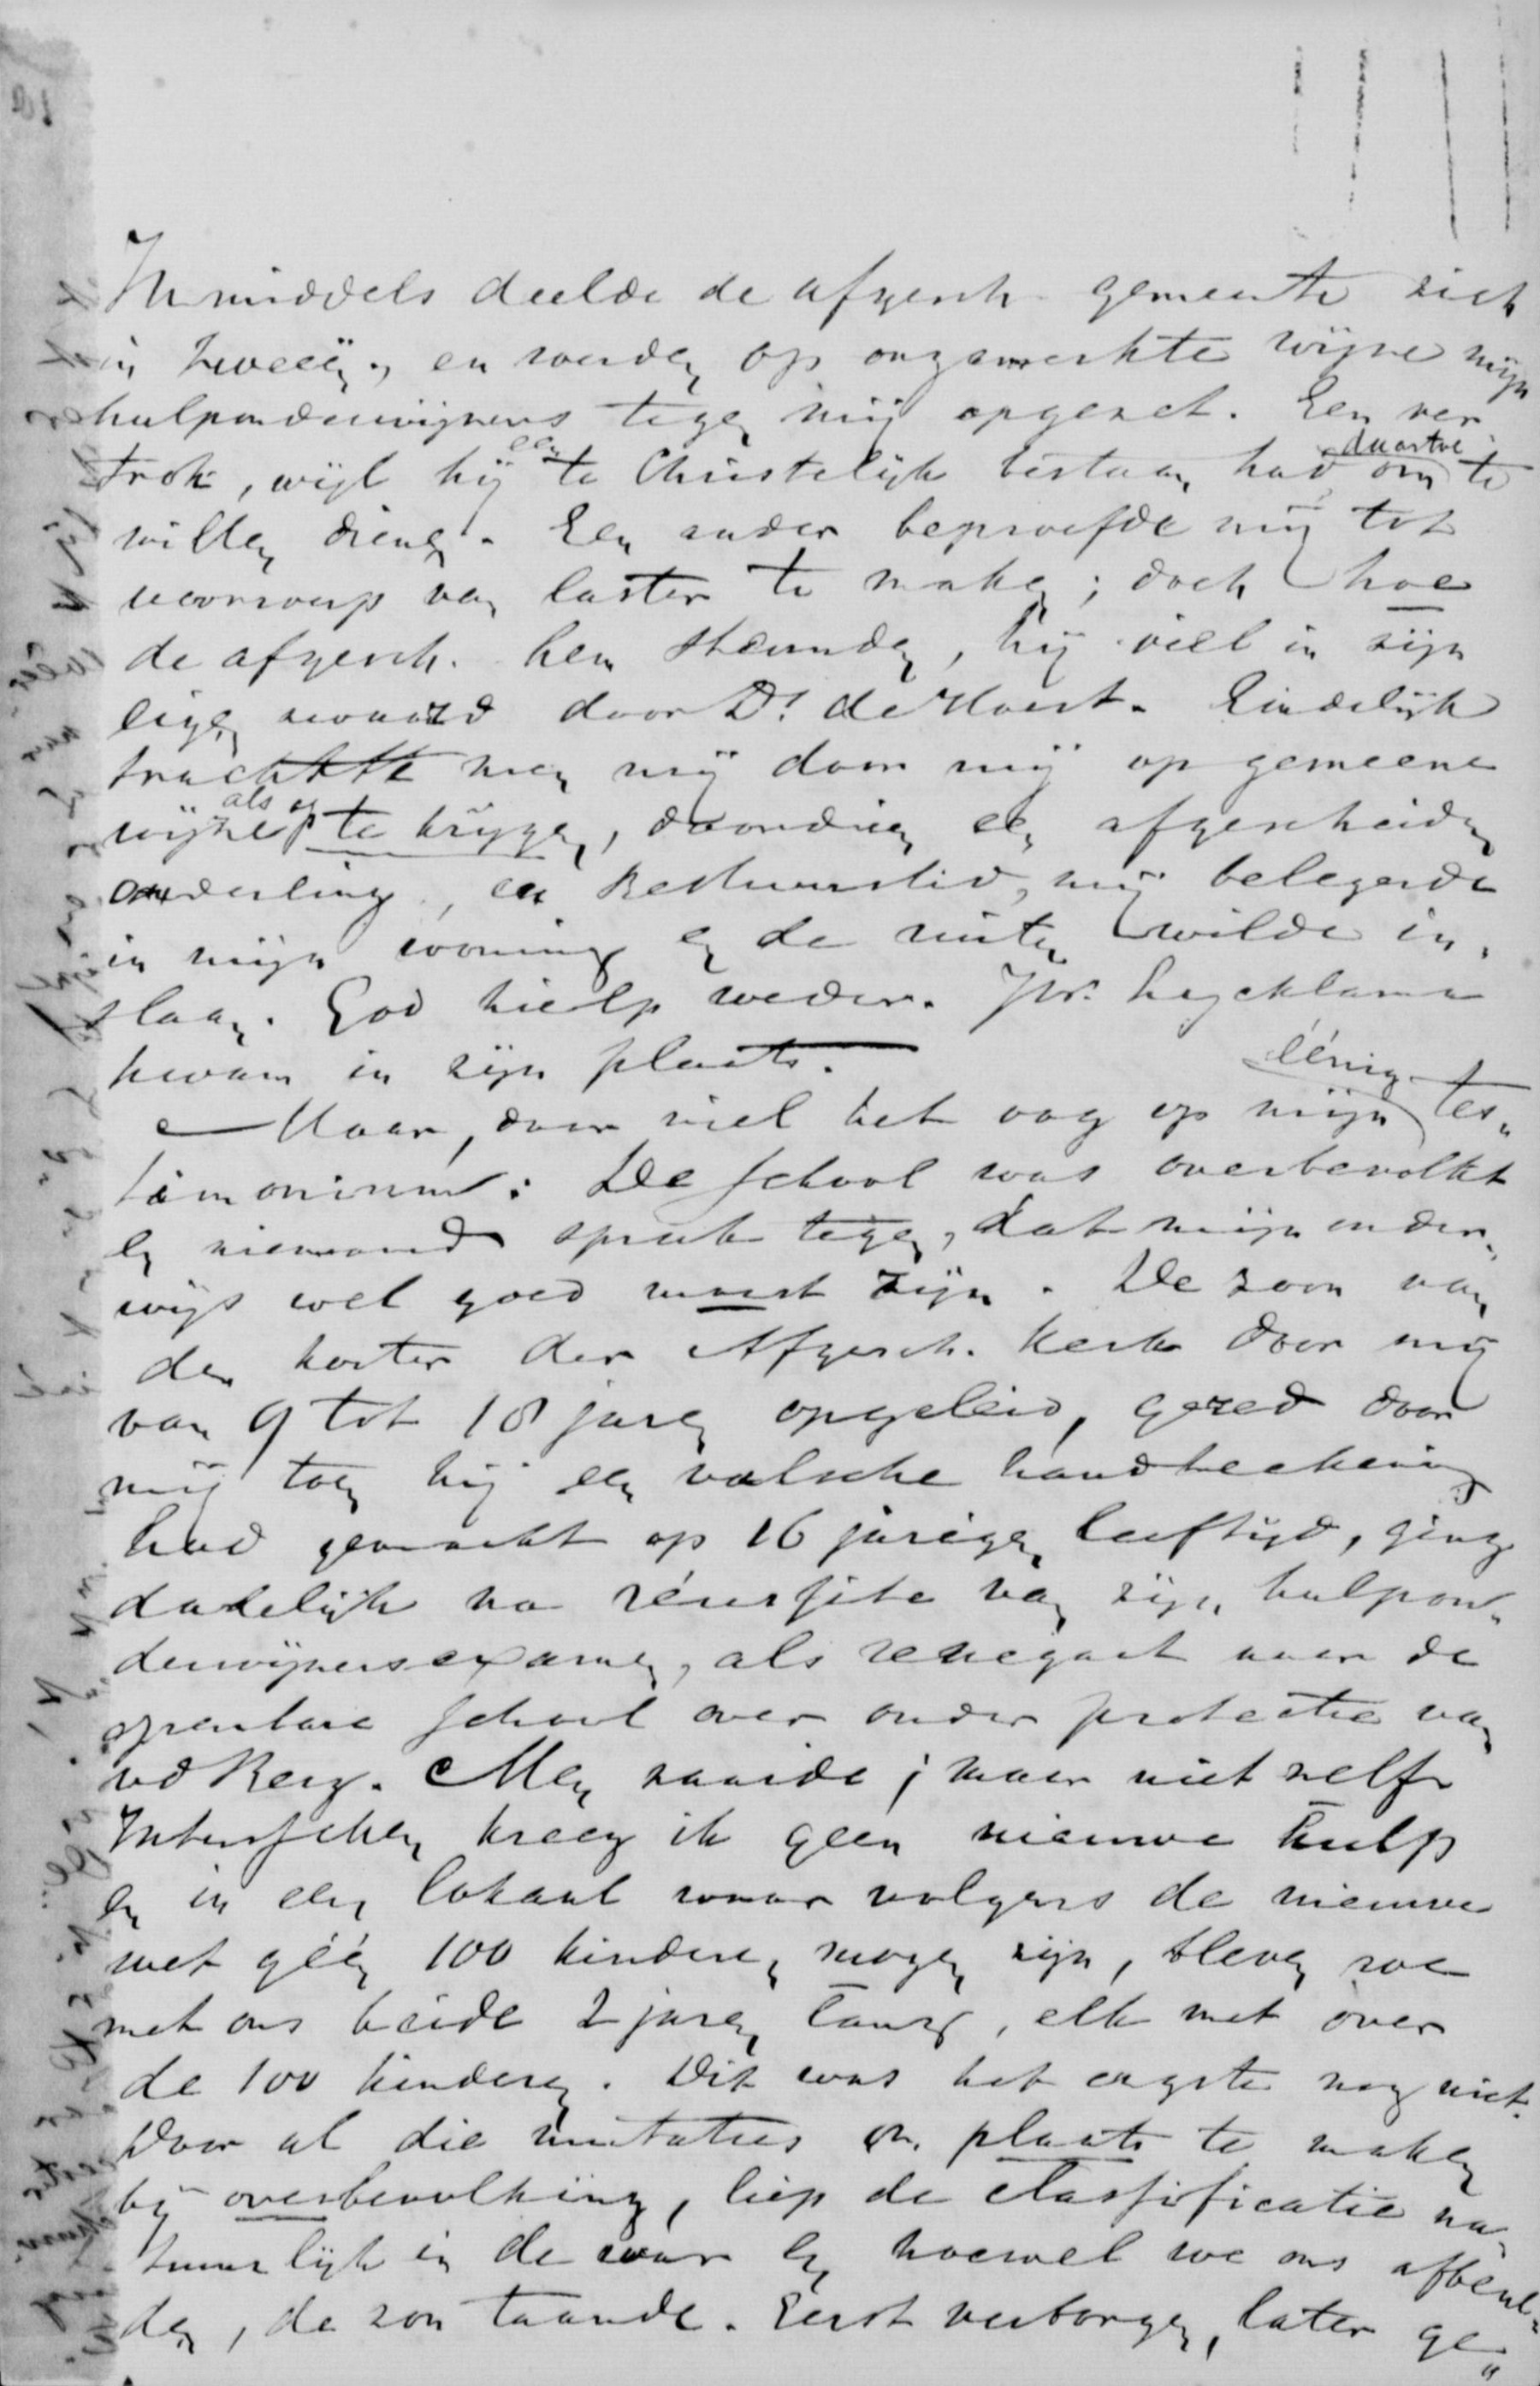 Inmiddels deelde de afgesch. gemeente zich
in tweeën, en werden op ongemerkte wijze mijn
hulponderwijzers tegen mij opgezet. Een ver
trok, wijl hij een te Christelijk bestaan had om daartoe te
willen dienen. Een ander beproefde mij tot
voorwerp van laster te maken; doch hoe
de afgesch. hem steunden, hij viel in zijn
eigen zwaard door Ds. de Hoest. Eindelijk
trachtte men mij door mij op gemeene
wijze als op te krijgen, doordien een afgescheiden
ouderling, en Bestuurslid, mij belegerde
in mijn woning en de ruiten wilde in„
slaan. God hielp weder. Jhr. Lycklama
kwam in zijn plaats.
Maar, daar viel het oog op mijn éénig tes„
timonium: De school was overbevolkt
en niemand sprak tegen, dat mijn onder„
wijs wel goed moest zijn. De zoon van
den koster der Afgesch. Kerk door mij
van 9 tot 18 jaren opgeleid, gered door
mij toen hij een valsche handteekening
had gemaakt op 16 jarigen leeftijd, ging
dadelijk na réussite van zijn hulpon„
derwijzersexamen, als renegaat naar de
openbare school over onder protectie van
vd Berg. Men zaaide; maar niet zelf.
Intusschen kreeg ik geen nieuwe hulp
en in een lokaal waar volgens de nieuwe
wet géén 100 kinderen mogen zijn, bleven we
met ons beide 2 jaren lang, elk met over
de 100 kinderen. Dit was het ergste nog niet.
Door al die mutaties om plaats te maken
bij overbevolking, liep de classificatie na„
tuurlijk in de war en hoewel we ons afbeul„
den, de zon taande. Eerst verborgen, later ge„